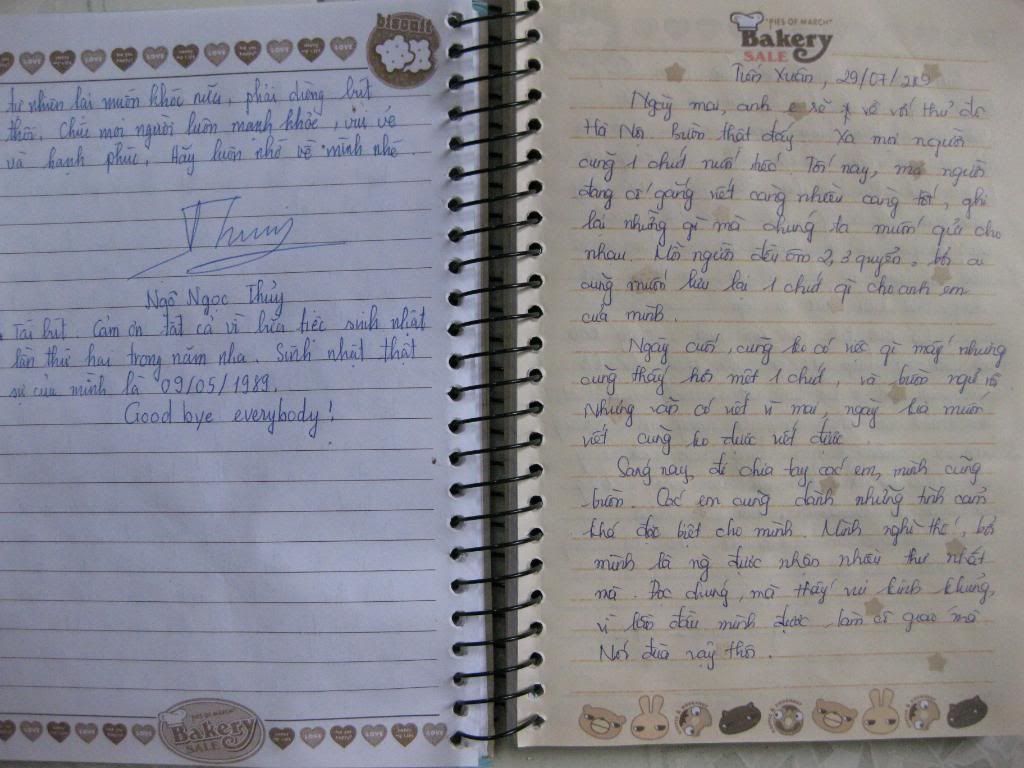 biscuit
tự nhiên lại muốn khóc nữa, phải dừng bút
thôi. Chúc mọi người luôn mạnh khỏe, vui vẻ
và hạnh phúc, Hãy luôn nhớ về mình nhé.
Thuỷ
Ngô Ngọc Thủy
Tái bút. Cảm ơn tất cả vì bữa tiệc sinh nhật
lần thứ hai trong năm nha. Sinh nhật thật
sự của mình là 09/05/1989.
Good bye everybody!
"PIES OF MARCH"
Bakery
SALE
"PIES OF MARCH"
Bakery
SALE
Tiên Xuân, 29/07/2009
Ngày mai, anh e sẽ về với thủ đô
Hà Nội. Buồn thật đấy. Xa mọi người
cũng 1 chút nuối tiếc. Tối nay, mọi người
đang cố gắng viết càng nhiều càng tốt, ghi
lại những gì mà chúng ta muốn gửi cho
nhau. Mỗi người đều ôm 2, 3 quyển, bởi ai
cũng muốn lưu lại 1 chút gì cho anh em
của mình.
Ngày cuối, cũng ko có việc gì mấy nhưng
cũng thấy hơi mệt 1 chút, và buồn ngủ
Nhưng vẫn cố viết vì mai, ngày kia muốn
viết cũng ko được viết được.
Sáng nay, đi chia tay các em, mình cũng
buồn. Các em cũng dành những tình cảm
khá đặc biệt cho mình. Mình nghĩ thế, bởi
mình là ng được nhận nhiều thư nhất
mà. Đọc chúng, mà thấy vui kinh khủng,
vì lần đầu mình được làm cô giáo mà
Nói đùa vậy thôi.